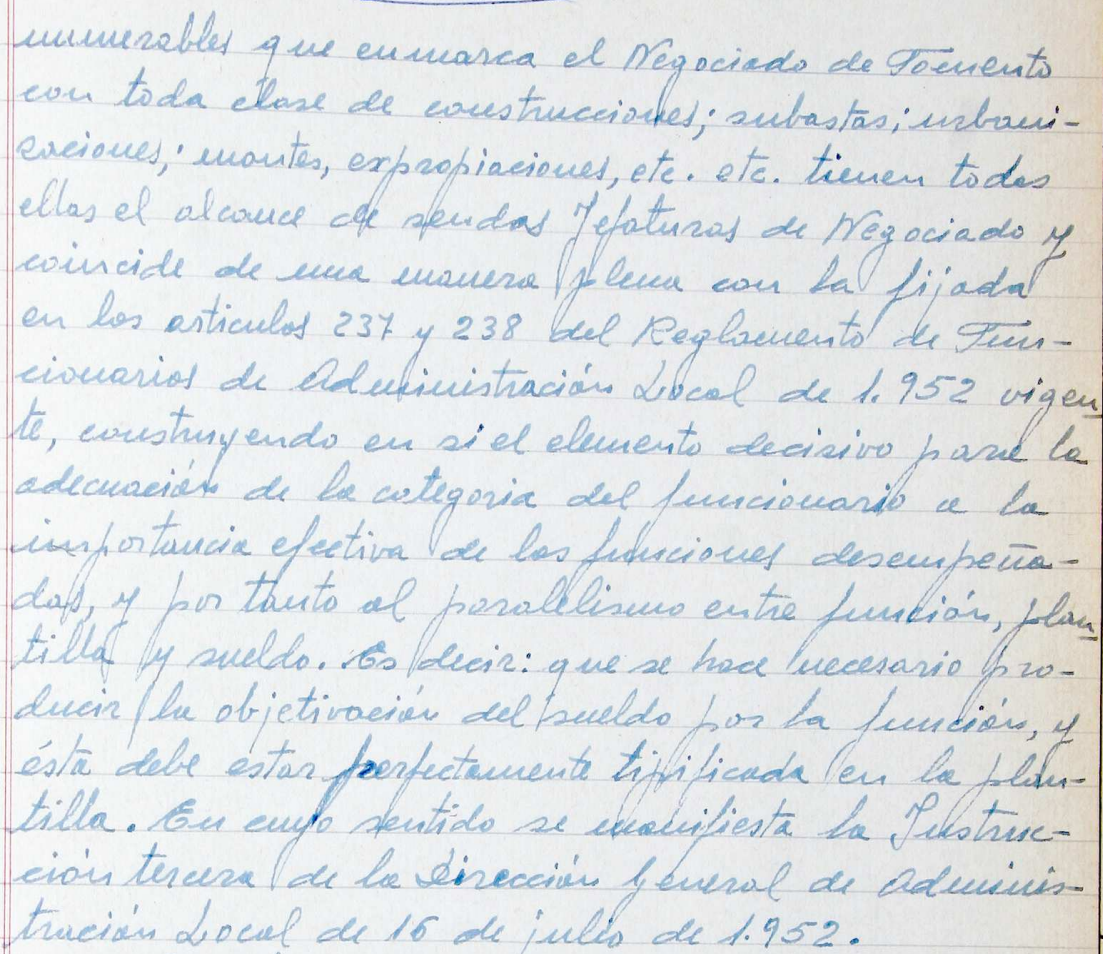 numerables que enmarca el Negociado de Fomento
con toda clase de construcciones; subastas; urbani-
zaciones; montes, expropiaciones, etc. etc. tienen todas
ellas el alcance de sendas Jefaturas de Negociado y
coincide de una manera plena con la fijada
en los articulos 237 y 238 del Reglamento de Fun-
cionarios de Administración Local de 1.952 vigen
te, construyendo en si el elemento decisivo para la
adecuación de la categoria del funcionario a la
importancia efectiva de las funciones desempeña-
das, y por tanto al paralelismo entre función, plan
tilla y sueldo. Es decir: que se hace necesario pro-
ducir la objetivación del sueldo por la función, y
ésta debe estar perfectamente tipificada en la plan-
tilla. En cuyo sentido se manifiesta la Instruc-
ción tercera de la Dirección General de Adminis-
tración Local de 16 de julio de 1.952.